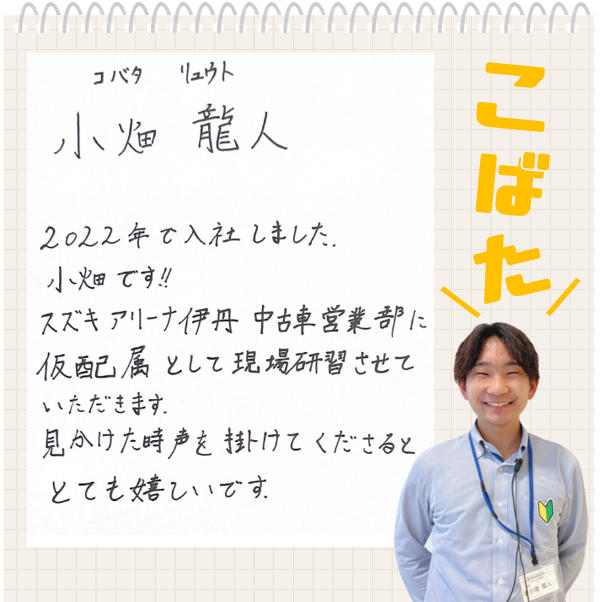 コバタ リュウト
小畑 龍人
2022年で入社しました.
小畑です!!
スズキアリーナ伊丹 中古車営業部に
仮配属として現場研習させて
いただきます.
見かけた時声を掛けてくださると
とても嬉しいです.
こばた
小畑 龍人